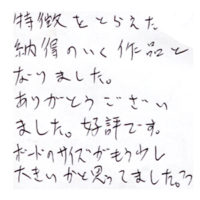 特徴をとらえた
納得のいく作品と
なりました。
ありがとうござい
ました。好評です。
ボードのサイズがもう少し
大きいかと思ってました。